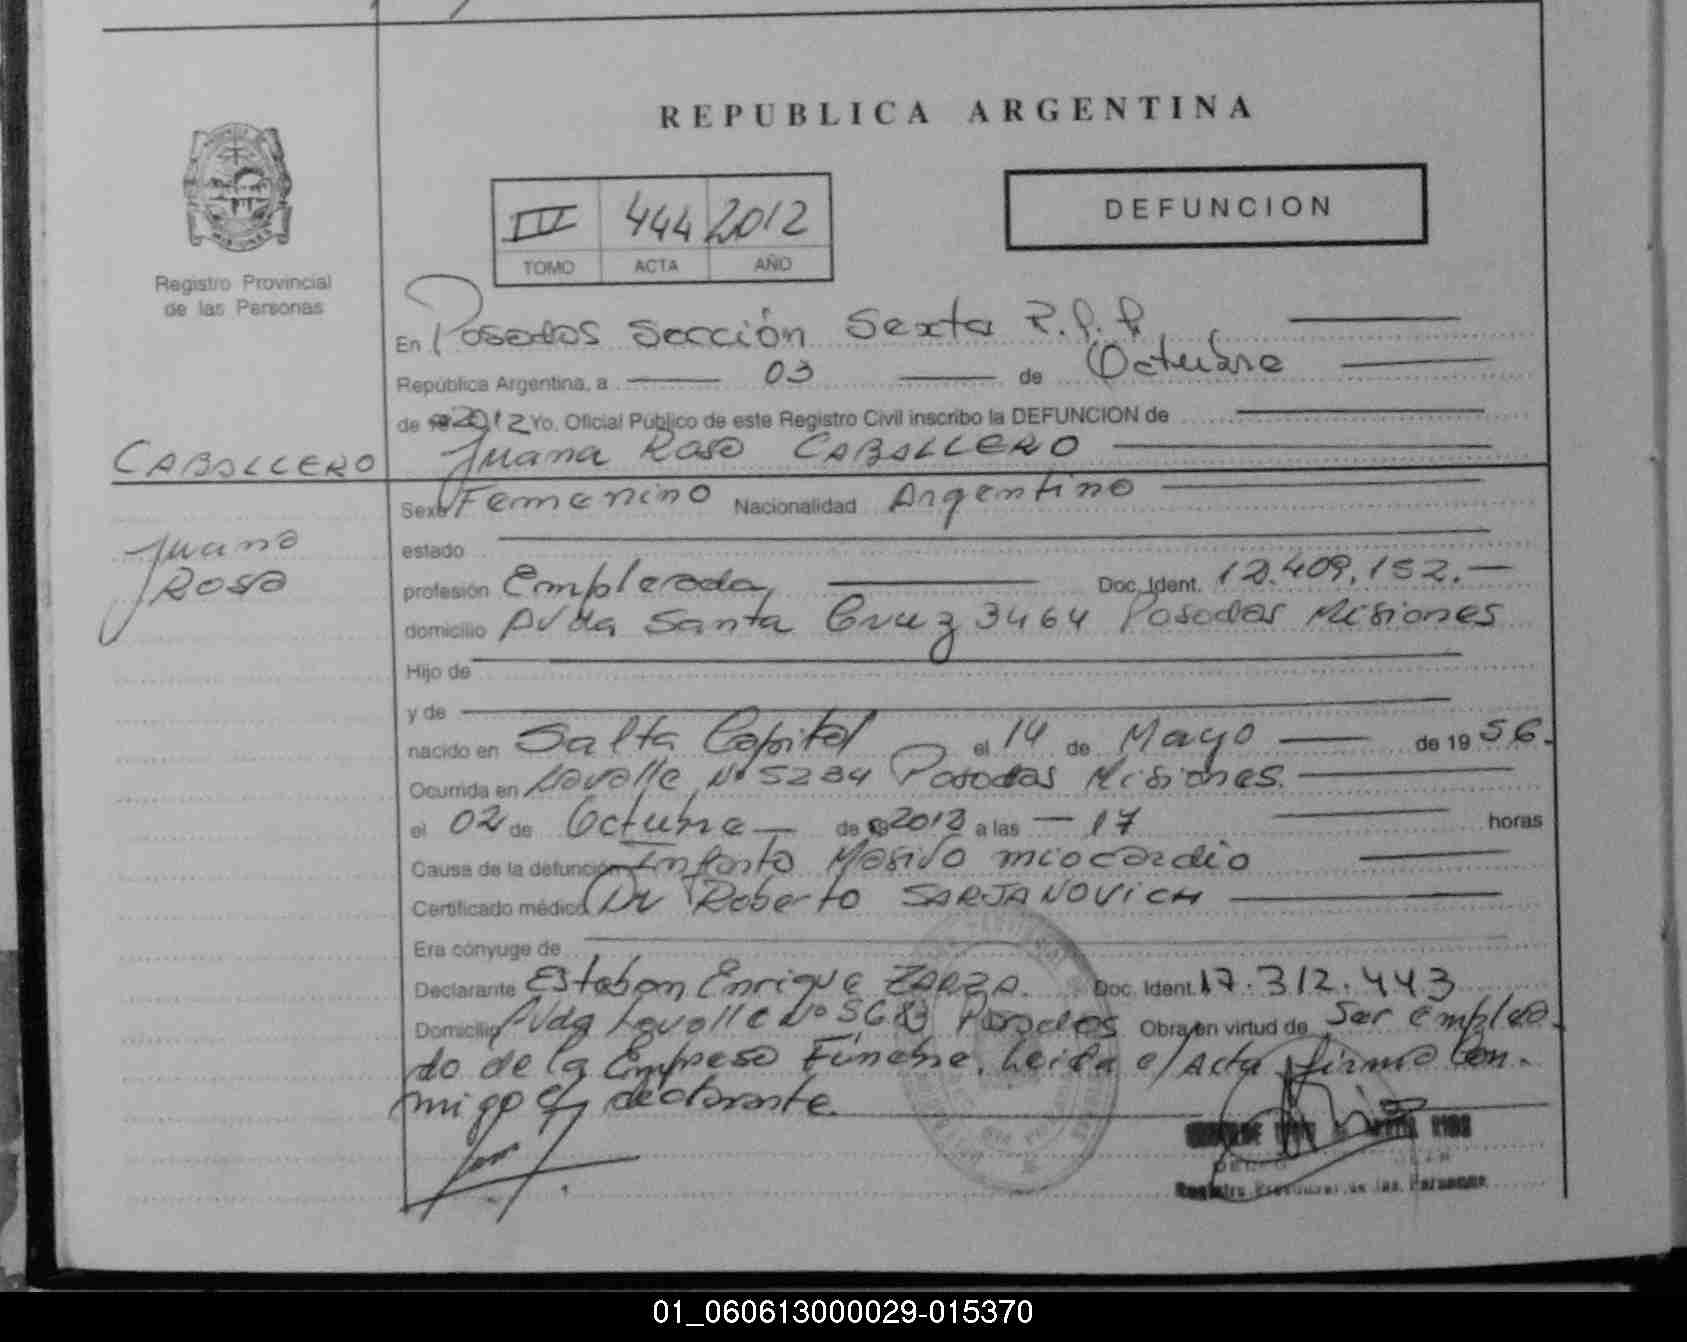 REPUBLICA ARGENTINA
Registro Provincial
de las Personas
III 444 2012
TOMO ACTA AÑO
DEFUNCION
En Posadas Sección Sexta R.P.P.
República Argentina, a 03 de Octubre
de 2012 Yo, Oficial Público de este Registro Civil inscribo la DEFUNCION de
CABALLERO
Juana Rosa
Juana Rosa CABALLERO
Sexo Femenino Nacionalidad Argentina
estado
profesión Empleada Doc. Ident. 12.409.152.
domicilio Avda Santa Cruz 3464 Posadas Misiones
Hijo de
y de
nacido en Salta Capital el 14 de Mayo de 19 56.
Ocurrida en Lavalle Nº 5234 Posadas Misiones.
el 02 de Octubre de 2012 a las 17 horas
Causa de la defunción Infarto Masivo miocardio
Certificado médico Dr Roberto SARJANOVICH
Era cónyuge de
Declarante Esteban Enrique ZARZA. Doc. Ident. 17.312.443
Domicilio Avda Lavalle Nº Posadas Obra en virtud de Ser emplea
do de la Empresa Fúnebre. Leida el Acta firma Con
migo el declarante
Registro Provincial de las Personas
01_060613000029-015370